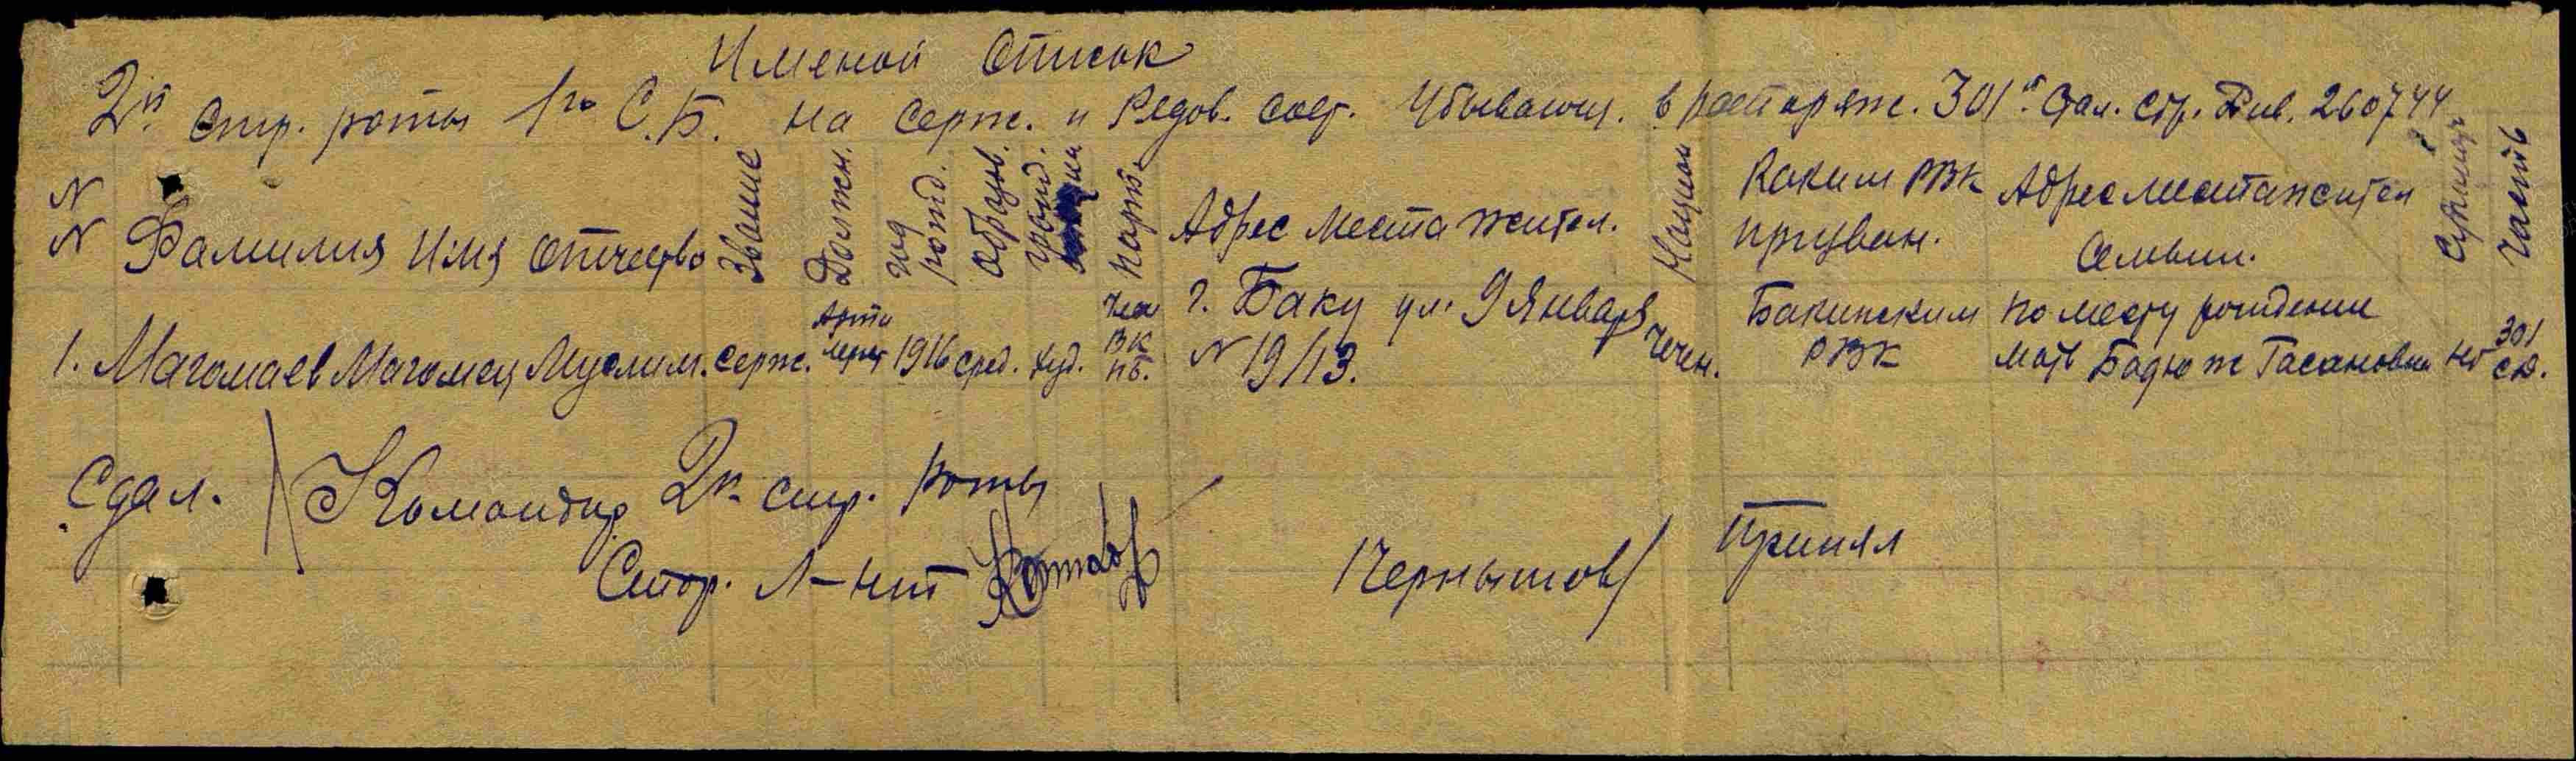 Именой Список
2й стр. роты 1го С.Б. на серж. и Рядов. сост. Убывающ. в распоряж. 301й Стал. Стр. Див. 26 07 44
N N Фамилия Имя Отчество Звание Должн. год рожд. Образов. гражд. Парт. Адрес места жител. Национ Каким РВК призван. Адрес места жител Семьи. Судимость Часть
1. Магомаев Магомет Муслим. серж. 1916 сред. худ. чл ВК пб. г. Баку ул. 9 Января N 19/13. Чечен. Бакинским РВК По месту рождения мать Бадюж Гасановна нет 301 СД.
Сдал. / Командир 2й стр. роты
Стар. Л-нт
Чернышов/
Принял